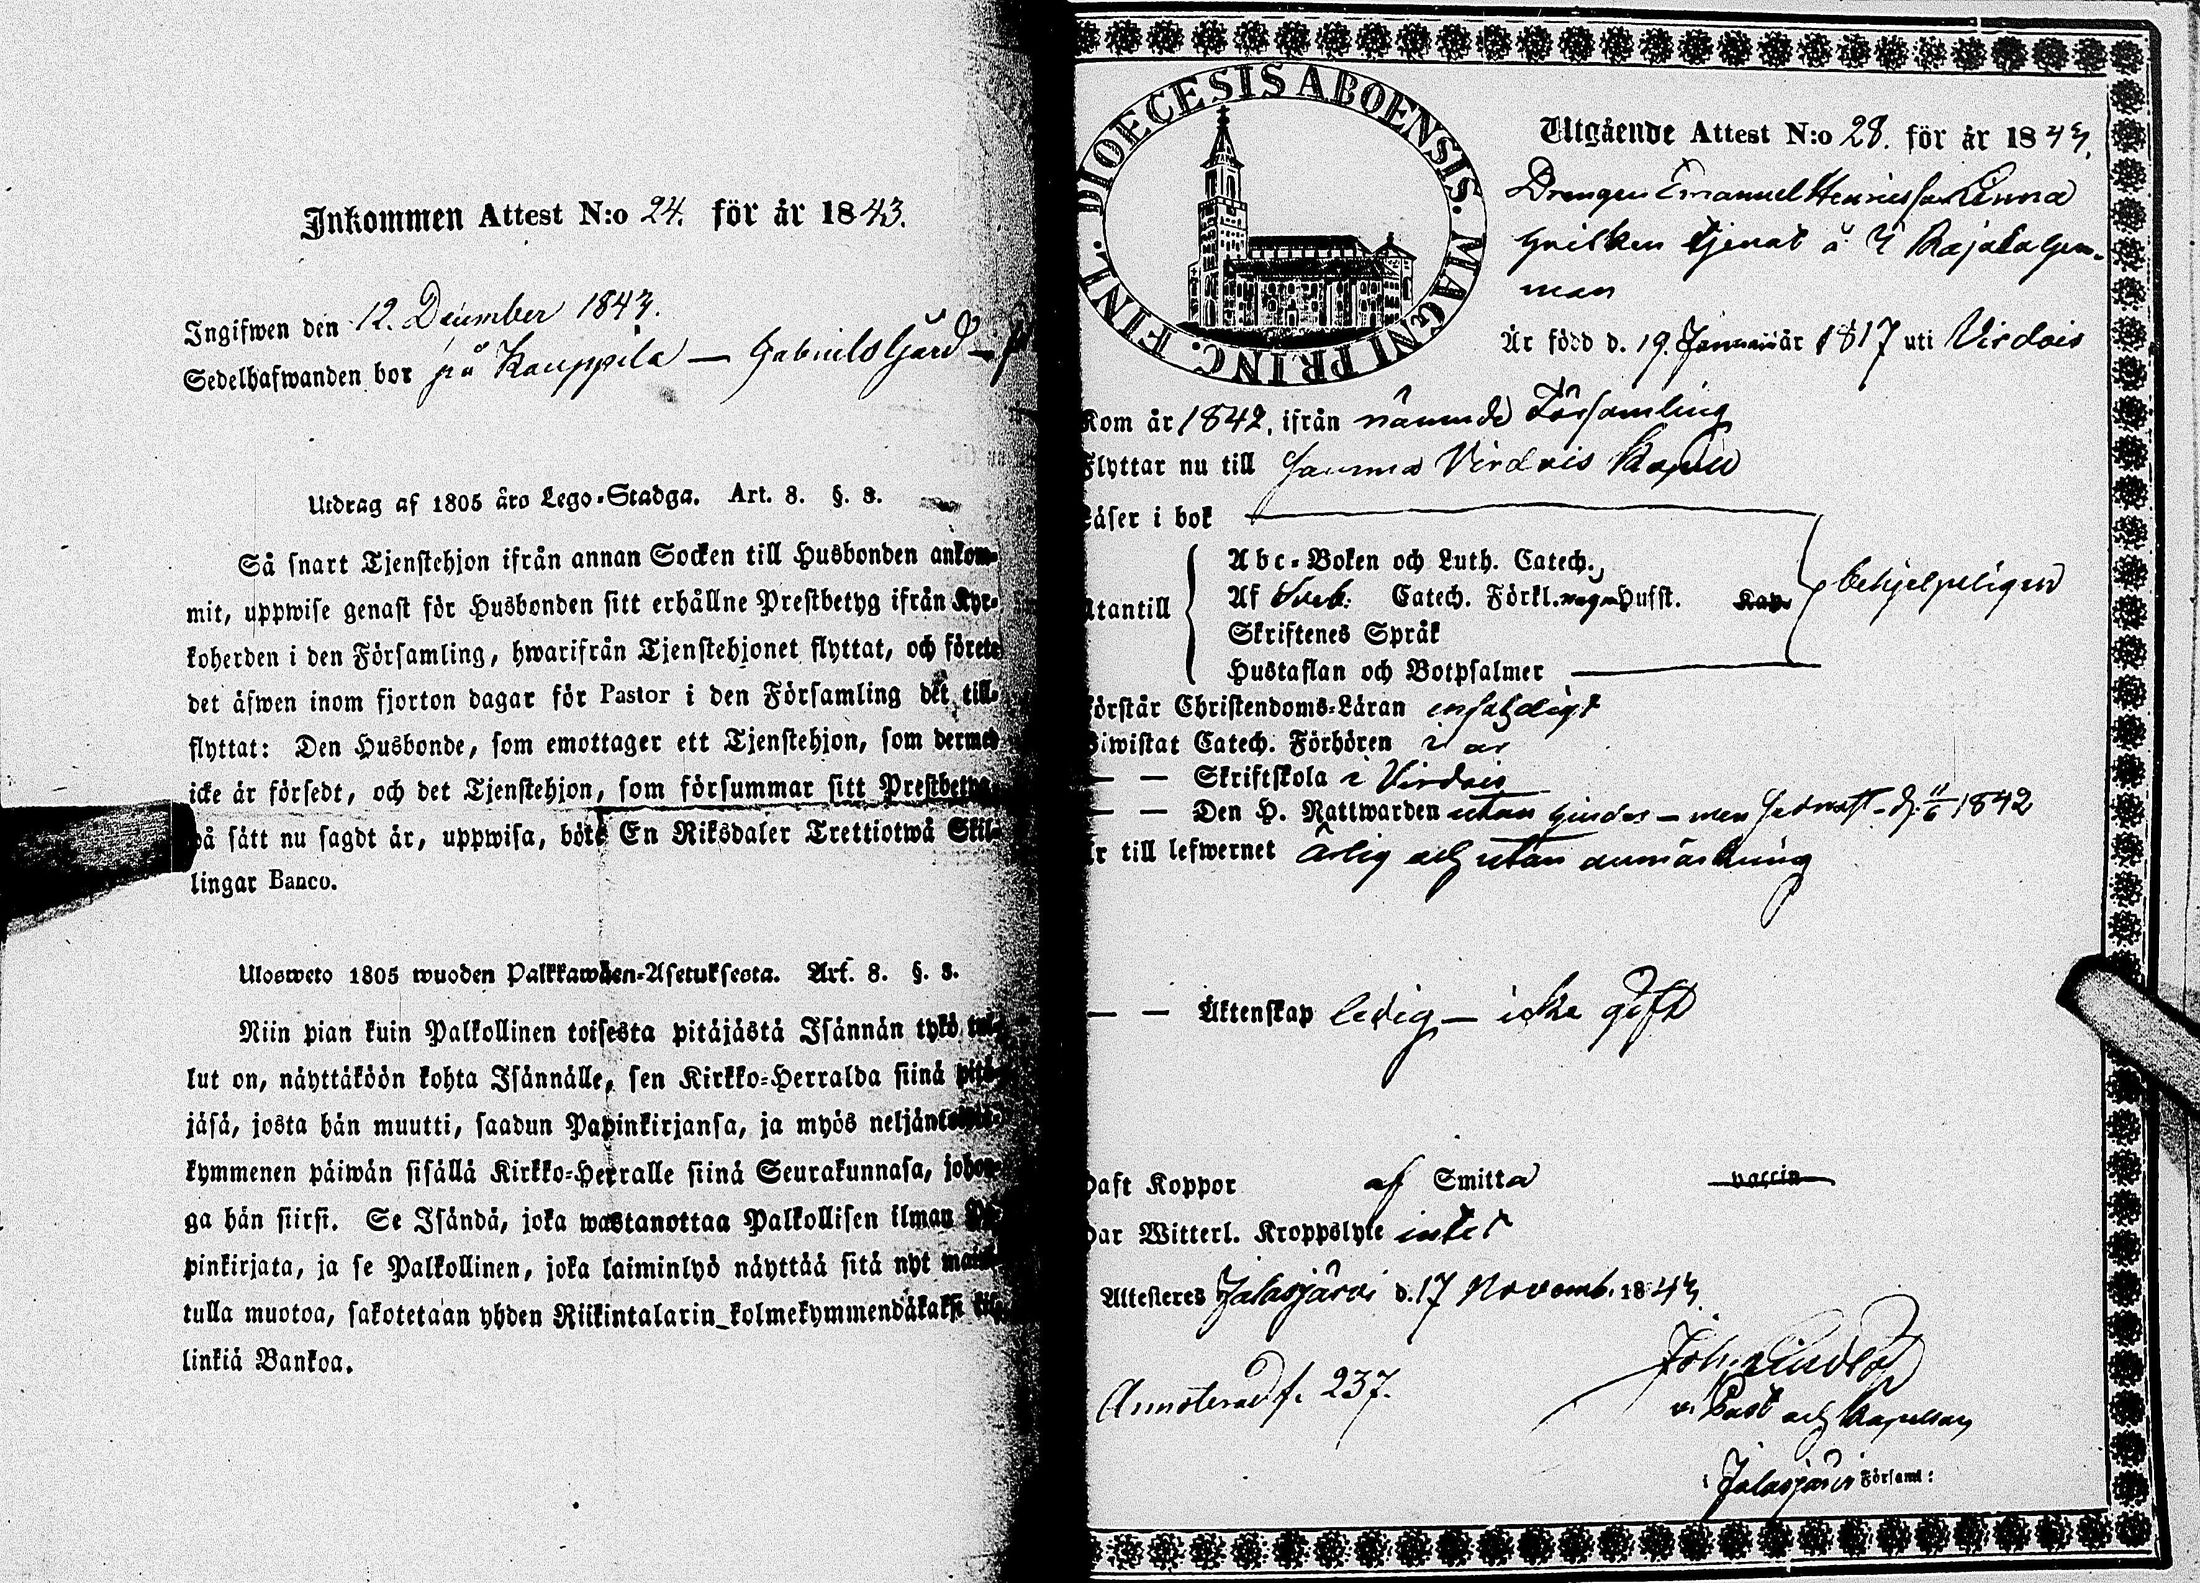 Inkommen Attest N:o 24. för år 1843.
Ingifwen den 12. December 1843.
Sedelhafwanden bor på Kauppila — Gabrielsgård —
Utdrag af 1805 åro Lego-Stadga. Art. 8. §. 8.
Så snart Tjenstehjon ifrån annan Socken till Husbonden ankom-
mit, uppwise genast för Husbonden sitt erhållne Prestbetyg ifrån Kyr-
koherden i den Församling, hwarifrån Tjenstehjonet flyttat, och förete
det äfwen inom fjorton dagar för Pastor i den Församling det till-
flyttat: Den Husbonde, som emottager ett Tjenstehjon, som dermed
icke är försedt, och det Tjenstehjon, som försummar sitt Prestbetyg
på sätt nu sagdt är, uppwisa, böte En Riksdaler Trettiotwå Skil-
lingar Banco.
Ulosweto 1805 wuoden Palkkawäen-Asetuksesta. Art. 8. §. 8.
Niin pian kuin Palkollinen toisesta pitäjästä Isännän tykö tul-
lut on, näyttäköön kohta Isännälle, sen Kirkko-Herralda siinä pitä-
jäsä, josta hän muutti, saadun Papinkirjansa, ja myös neljäntoista-
kymmenen päiwän sisällä Kirkko-Herralle siinä Seurakunnasa, johon-
ga hän siirsi. Se Isändä, joka wastanottaa Palkollisen ilman Pa-
pinkirjata, ja se Palkollinen, joka laiminlyö näyttää sitä nyt mainit-
tulla muotoa, sakotetaan yhden Riikintalarin kolmekymmendäkaksi kil-
linkiä Bankoa.
DIOECESIS ABOENSIS. MAGNI PRINC. FINL.
Utgående Attest N:o 28. för år 1843.
Drengen Emanuel Henricsson Linna
hvilken tjenat å Rajala hem-
man
Är född d. 19. Januari år 1817 uti Virdois
Kom år 1842, ifrån nämnde Församling
Flyttar nu till samma Virdois Kapell
Läser i bok
Abc-Boken och Luth. Catech.
Utantill Af Sveb. Catech. Förkl. Hufst. behjelpeligen
Skriftenes Språk
Hustaflan och Botpsalmer
Förstår Christendoms-Läran enfaldigt
Biwistat Catech. Förhören i år
— — Skriftskola i Virdois
— — Den H. Nattwarden utan hinder — men sednast d. 11/6 1842
Är till lefwernet Ärlig och utan anmärkning
— — Äktenskap ledig — icke gift
Haft Koppor af Smitta vaccin
Har Witterl. Kroppslyte intet
Attesteres Jalasjärvi d. 17 Novemb. 1843.
Annoterad f. 237.
Joh.
v. Past och Kapellan
i Jalasjärvi Församl: